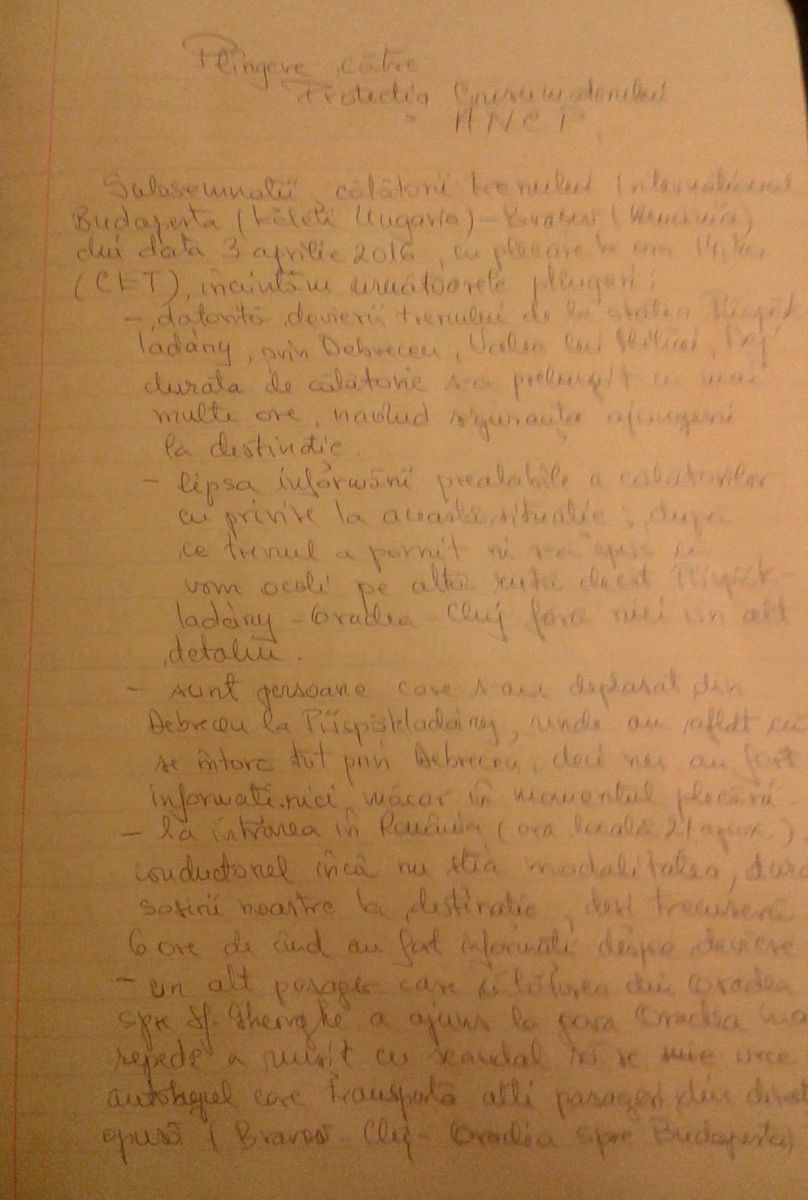 Plîngere către
Protecția Consumatorului
ANCP,
Subsemnații, călătorii trenului Internațional
Budapesta (Keleti Ungaria) - Brașov (România)
din data 3 aprilie 2016, cu plecare la ora 14,
(CET), înaintăm următoarele plîngeri:
- datorită devierii trenului de la stația Püspök
ladány, prin Debrecen, Valea lui Mihai, Dej
durata de călătorie s-a prelungit cu mai
multe ore, siguranța ajungerii
la destinație.
- lipsa informării prealabile a călătorilor
cu privire la această situație; după
ce trenul a pornit ni s-a spus că
vom ocoli pe altă rută decît Püspök-
ladány - Oradea - Cluj fără nici un alt
detaliu.
- sunt persoane care s-au deplasat din
Debrecen la Püspökladány, unde au aflat că
se întorc tot prin Debrecen, deci nu au fost
informați nici măcar în momentul plecării.
- la intrarea în România (ora locală 21 aprox.)
conductorul încă nu știa modalitatea, dura
sosirii noastre la destinație, deși trecuseră
6 ore de cînd au fost informați despre deviere
- un alt pasager care călătorea din Oradea
spre Sf. Gheorghe a ajuns la gara Oradea
repede a reușit cu scandal să se urce
autocarul care transporta alți pasageri din direc
opusă (Brașov - Cluj - Oradea spre Budapesta)